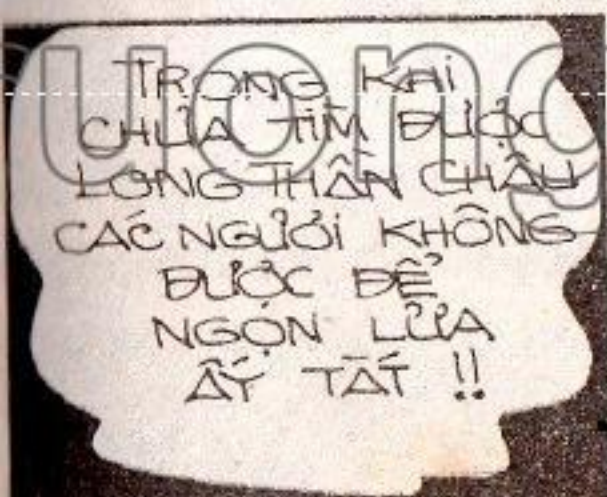 TRONG KHI
CHƯA TÌM ĐƯỢC
LONG THẦN CHÂU
CÁC NGƯƠI KHÔNG
ĐƯỢC ĐỂ
NGỌN LỬA
ẤY TẮT !!